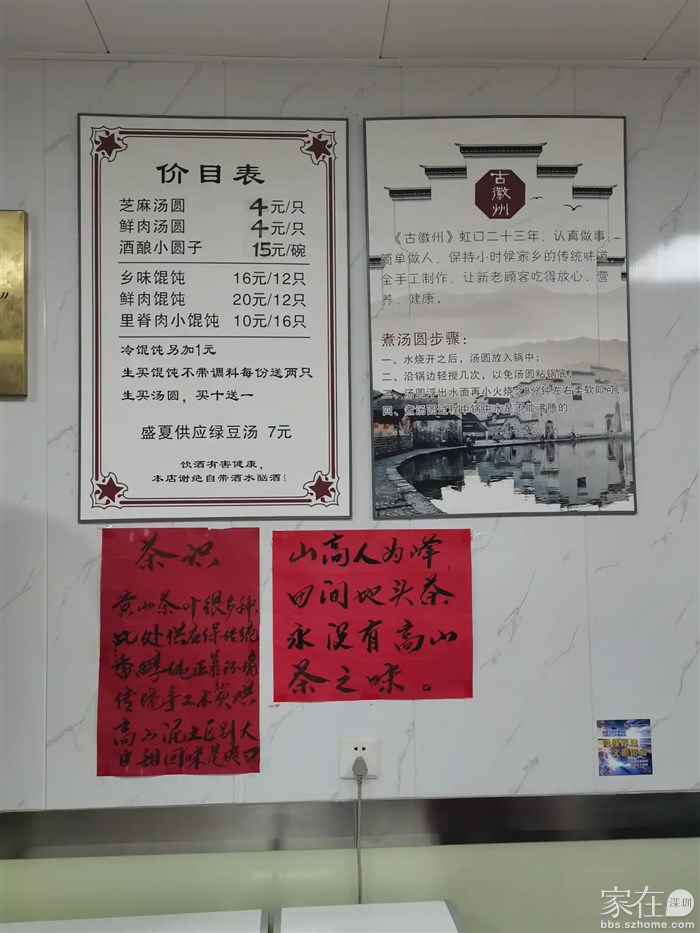 价目表
芝麻汤圆 4元/只
鲜肉汤圆 4元/只
酒酿小圆子 15元/碗
乡味馄饨 16元/12只
鲜肉馄饨 20元/12只
里脊肉小馄饨 10元/16只
冷馄饨另加1元
生买馄饨不带调料每份送两只
生买汤圆，买十送一
盛夏供应绿豆汤 7元
饮酒有害健康，
本店谢绝自带酒水酗酒！
古徽州
《古徽州》虹口二十三年，认真做事，
简单做人，保持小时候家乡的传统味道，
全手工制作，让新老顾客吃得放心、营
养、健康。
煮汤圆步骤：
一、水烧开之后，汤圆放入锅中；
二、沿锅边轻搅几次，以免汤圆粘锅底；
三、汤圆浮出水面再小火烧之8分钟左右柔软即可；
四、煮汤圆过程中锅中水是不能沸腾的
茶识
黄山茶叶很多种
此处供应保传统
纯正靠环境
传统手工木炭烘
高山泥土区别大
日 回味是爽口
山高人为峰
田间地头茶
永没有高山
茶之味。
”
家在深圳
bbs.szhome.com